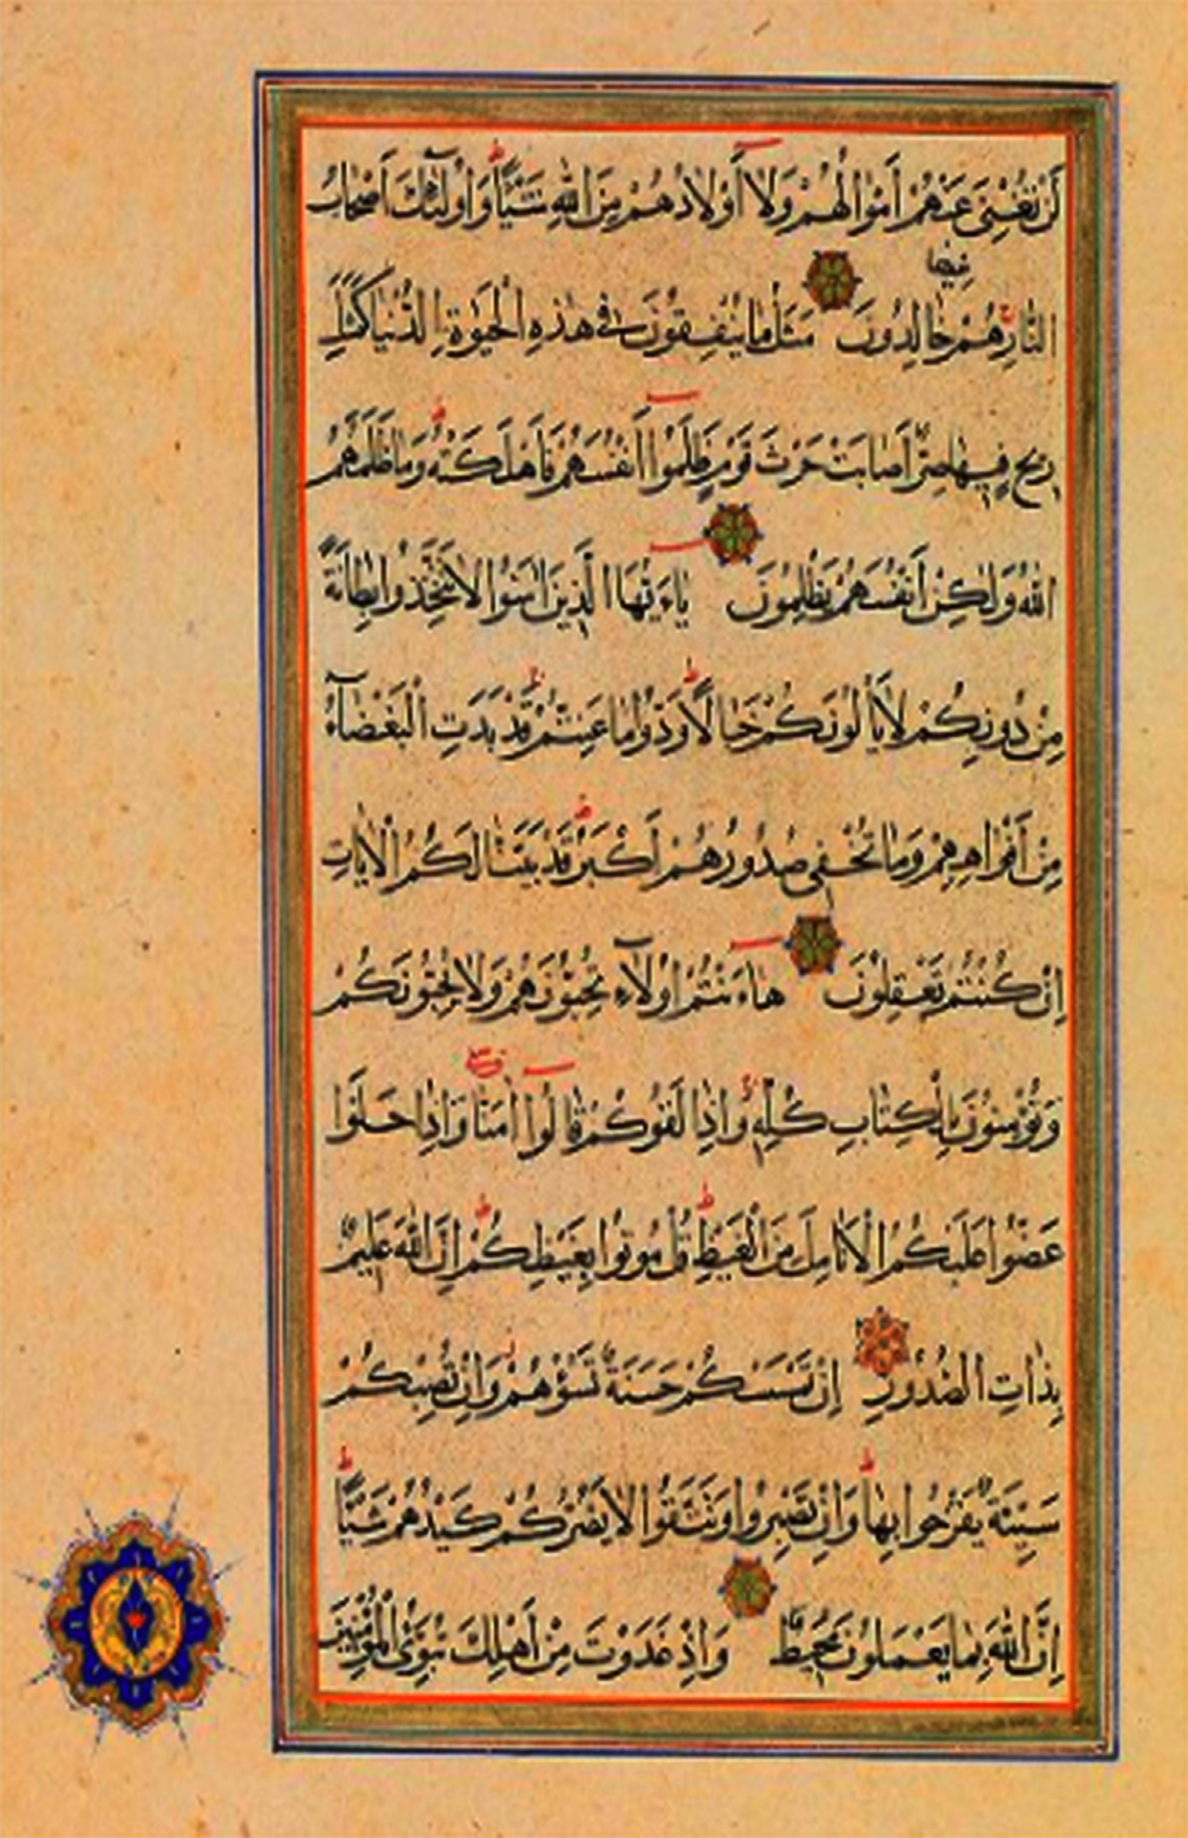 لَنْ تُغْنِىَ عَنْهُمْ اَمْوَالُهُمْ وَلَا اَوْلَادُهُمْ مِنَ اللّٰهِ شَيْئًا وَاُولٰٓئِكَ اَصْحَابُ
فيها
النَّارِ هُمْ خَالِدُونَ مَثَلُ مَا يُنْفِقُونَ فِى هٰذِهِ الْحَيٰوةِ الدُّنْيَا كَمَثَلِ
رِيحٍ فِيهَا صِرٌّ اَصَابَتْ حَرْثَ قَوْمٍ ظَلَمُوا اَنْفُسَهُمْ فَاَهْلَكَتْهُ وَمَا ظَلَمَهُمُ
اللّٰهُ وَلٰكِنْ اَنْفُسَهُمْ يَظْلِمُونَ يَاءَيُّهَا الَّذِينَ اٰمَنُوا لَا تَتَّخِذُوا بِطَانَةً
مِنْ دُونِكُمْ لَا يَاْلُونَكُمْ خَبَالًا وَدُّوا مَا عَنِتُّمْ قَدْ بَدَتِ الْبَغْضَآءُ
مِنْ اَفْوَاهِهِمْ وَمَا تُخْفِى صُدُورُهُمْ اَكْبَرُ قَدْ بَيَّنَّا لَكُمُ الْاٰيَاتِ
اِنْ كُنْتُمْ تَعْقِلُونَ هَاءَنْتُمْ اُولَآءِ تُحِبُّونَهُمْ وَلَا يُحِبُّونَكُمْ
وَتُؤْمِنُونَ بِالْكِتَابِ كُلِّهِ وَاِذَا لَقُوكُمْ قَالُوا اٰمَنَّا وَاِذَا خَلَوْا
عَضُّوا عَلَيْكُمُ الْاَنَامِلَ مِنَ الْغَيْظِ قُلْ مُوتُوا بِغَيْظِكُمْ اِنَّ اللّٰهَ عَلِيمٌ
بِذَاتِ الصُّدُورِ اِنْ تَمْسَسْكُمْ حَسَنَةٌ تَسُؤْهُمْ وَاِنْ تُصِبْكُمْ
سَيِّئَةٌ يَفْرَحُوا بِهَا وَاِنْ تَصْبِرُوا وَتَتَّقُوا لَا يَضُرُّكُمْ كَيْدُهُمْ شَيْئًا
اِنَّ اللّٰهَ بِمَا يَعْمَلُونَ مُحِيطٌ وَاِذْ غَدَوْتَ مِنْ اَهْلِكَ تُبَوِّئُ الْمُؤْمِنِينَ